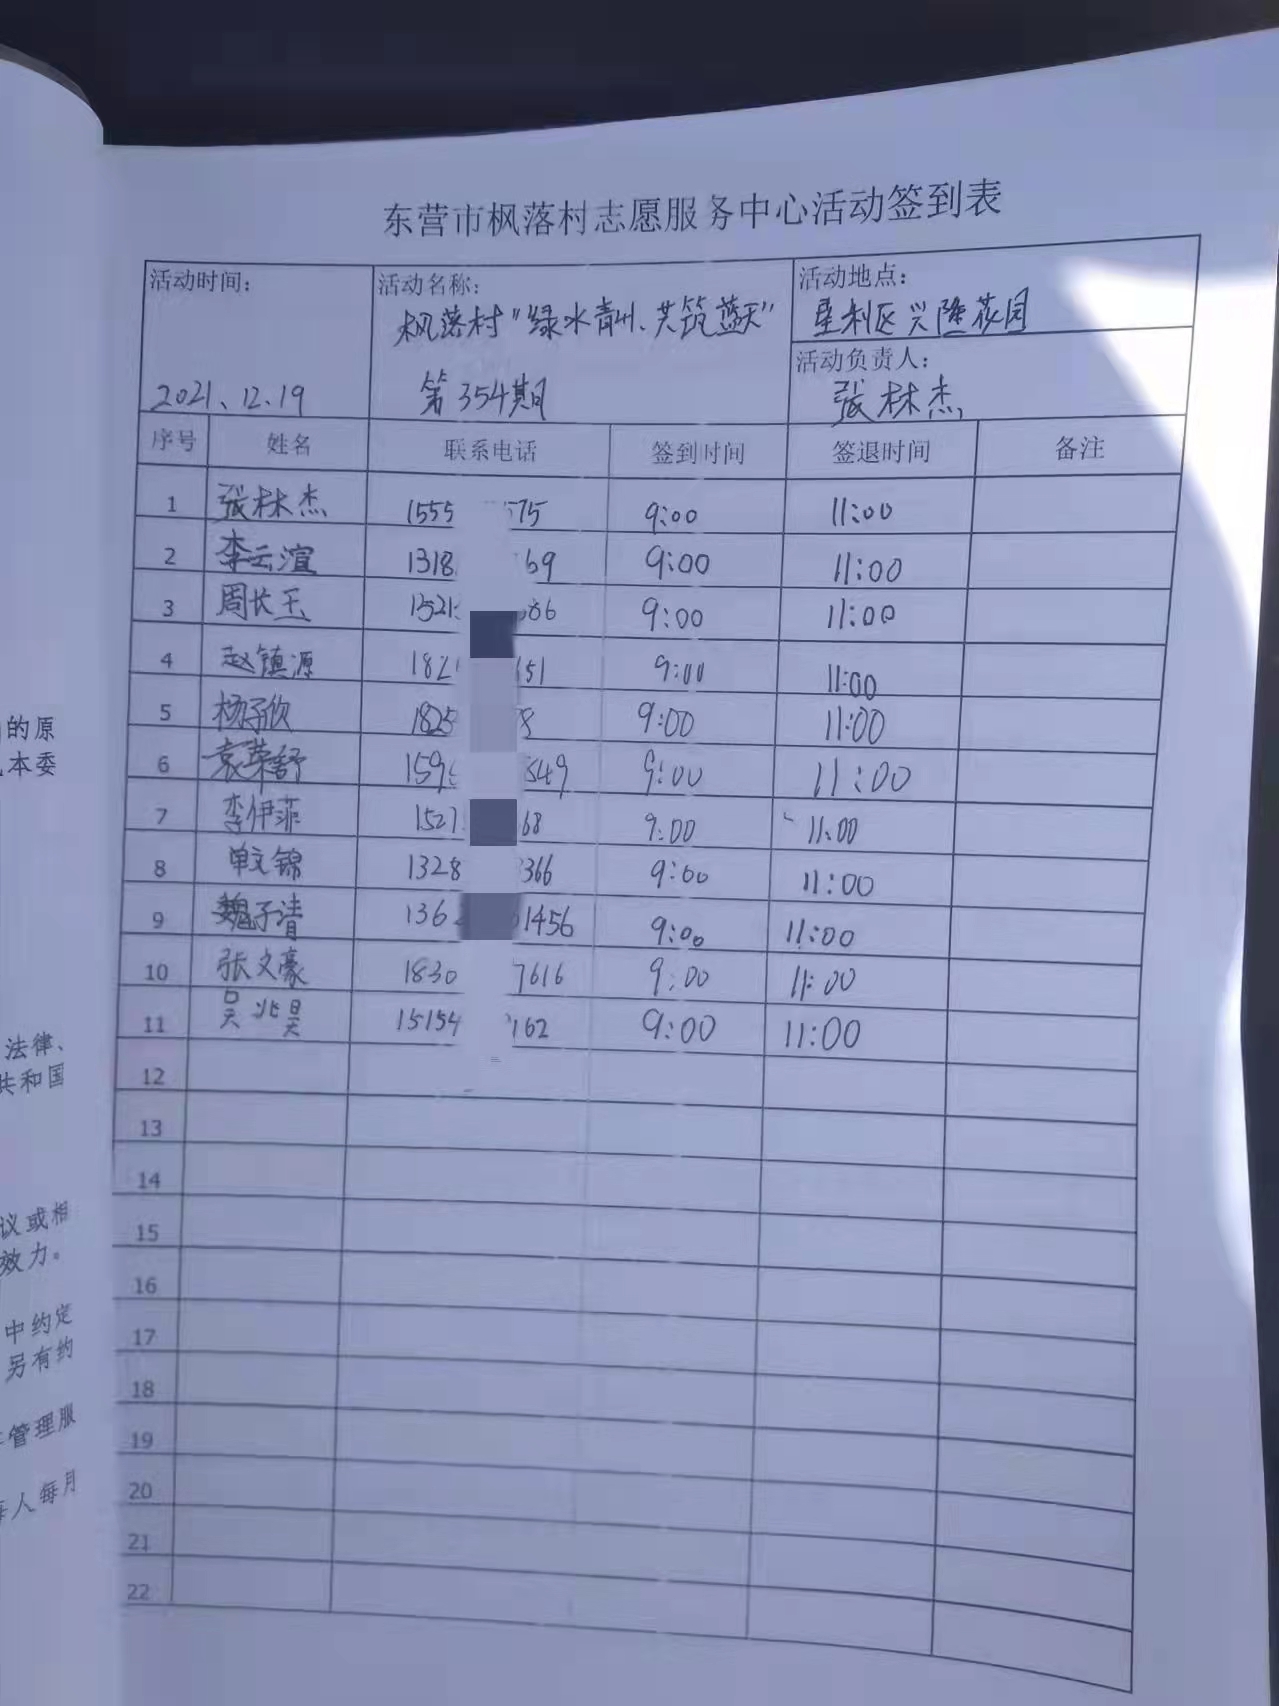 东营市枫落村志愿服务中心活动签到表
活动时间: 2021、12、19
活动名称: 枫落村"绿水青州、共筑蓝天"
第354期
活动地点: 垦利区兴隆花园
活动负责人: 张林杰
序号 姓名 联系电话 签到时间 签退时间 备注
1 张林杰 1555 575 9:00 11:00
2 李云渲 1318 69 9:00 11:00
3 周长玉 1521 686 9:00 11:00
4 赵镇源 182 651 9:00 11:00
5 杨子欣 1825 8 9:00 11:00
6 袁荣舒 159 549 9:00 11:00
7 李伊菲 1527 68 9:00 11:00
8 单文锦 1328 366 9:00 11:00
9 魏子清 136 1456 9:00 11:00
10 张文豪 1830 7616 9:00 11:00
11 吴兆昊 15154 162 9:00 11:00
12
13
14
15
16
17
18
19
20
21
22
的原
本委
法律、
共和国
议或相
效力。
中约定
另有约
管理服
每人每月